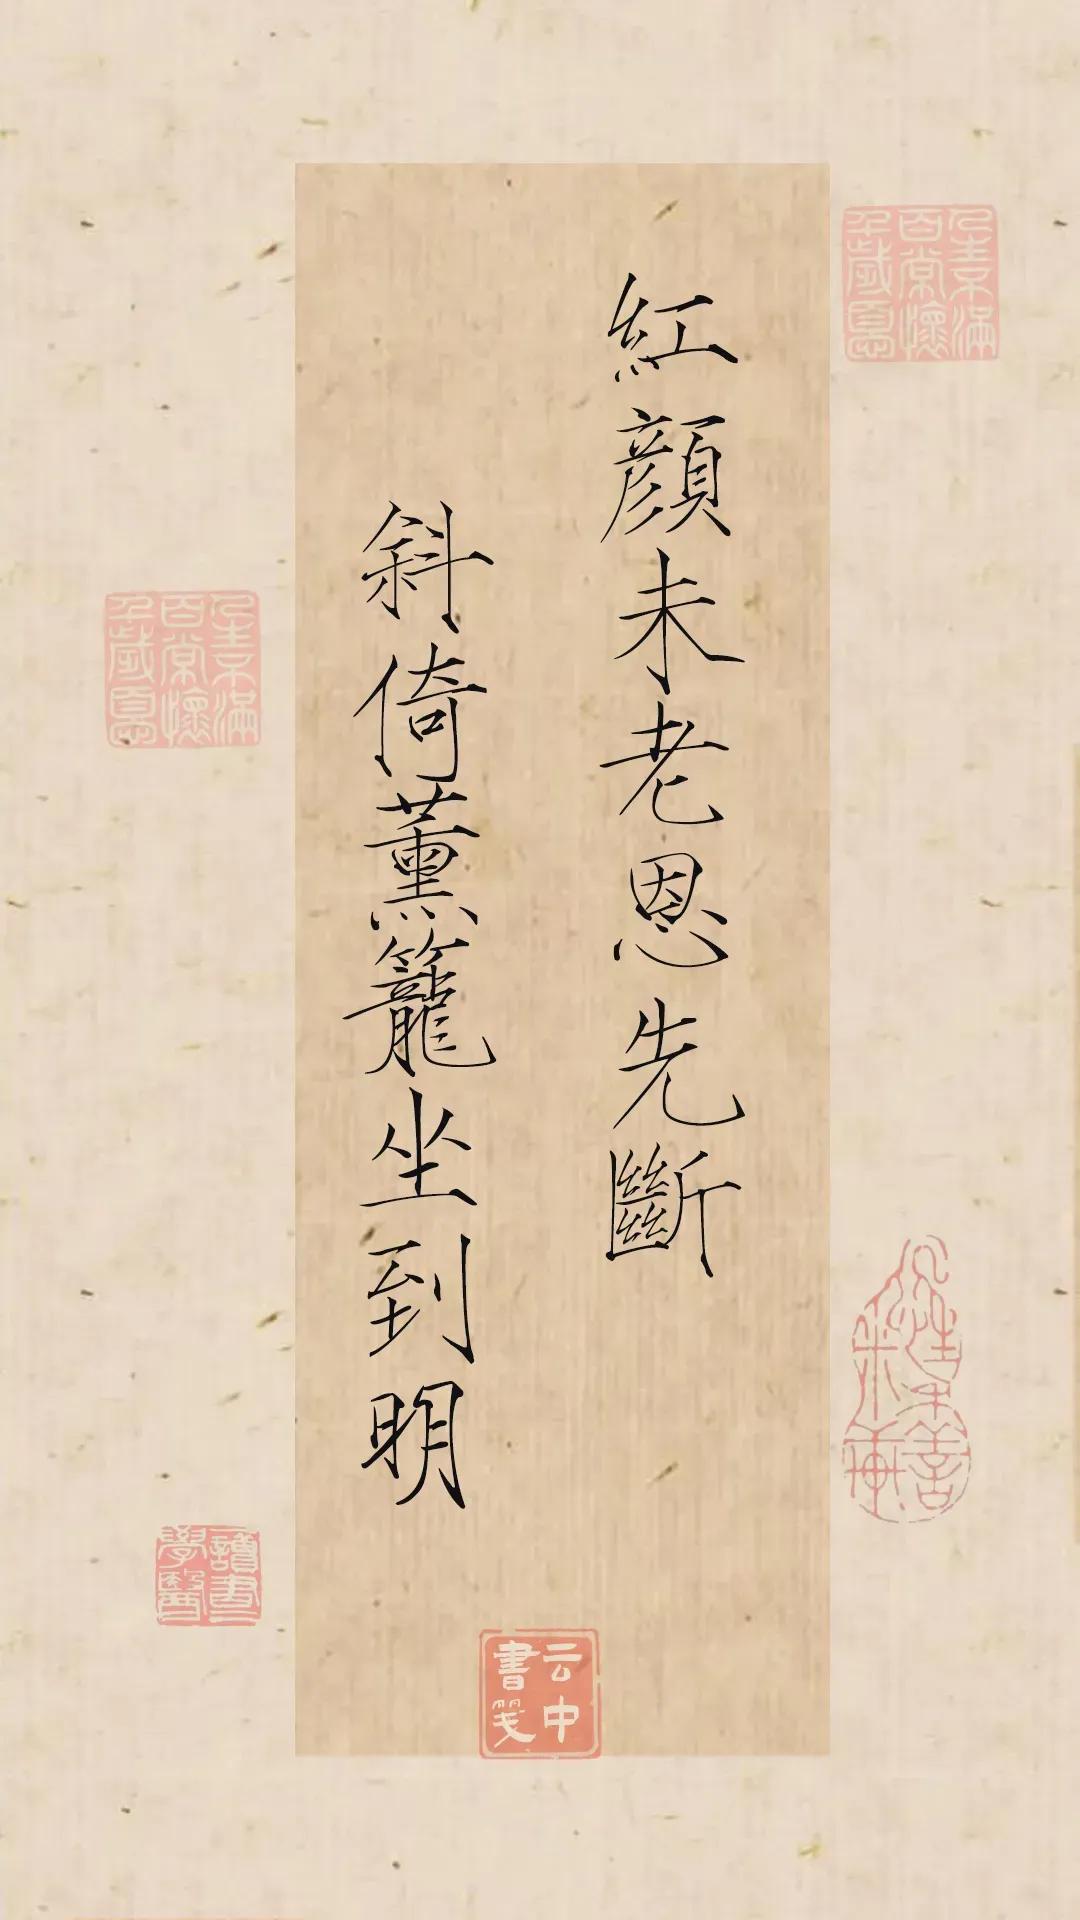 紅顏未老恩先斷
斜倚薰籠坐到明
云中書箋
讀書學醫